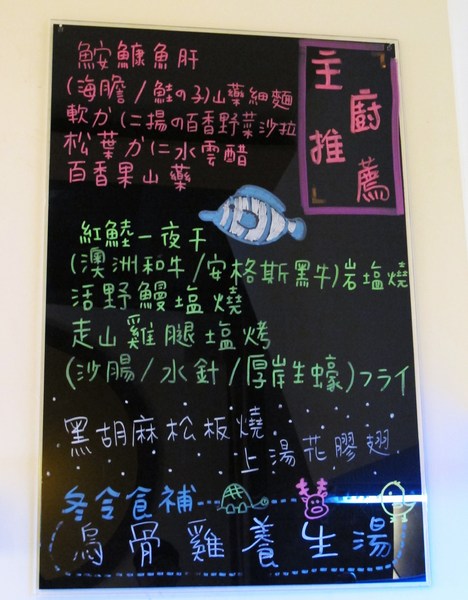 「主廚推薦」
鮟鱇魚肝
(海膽/鮭の子)山藥細麵
軟かに揚の百香野菜沙拉
松葉かに水雲醋
百香果山藥
紅鮭一夜干
(澳洲和牛/安格斯黑牛)岩塩燒
活野鰻塩燒
走山雞腿塩烤
(沙腸/水針/厚岸生蠔)フライ
黑胡麻松板燒
上湯花膠翅
冬令食補
烏骨雞養生湯